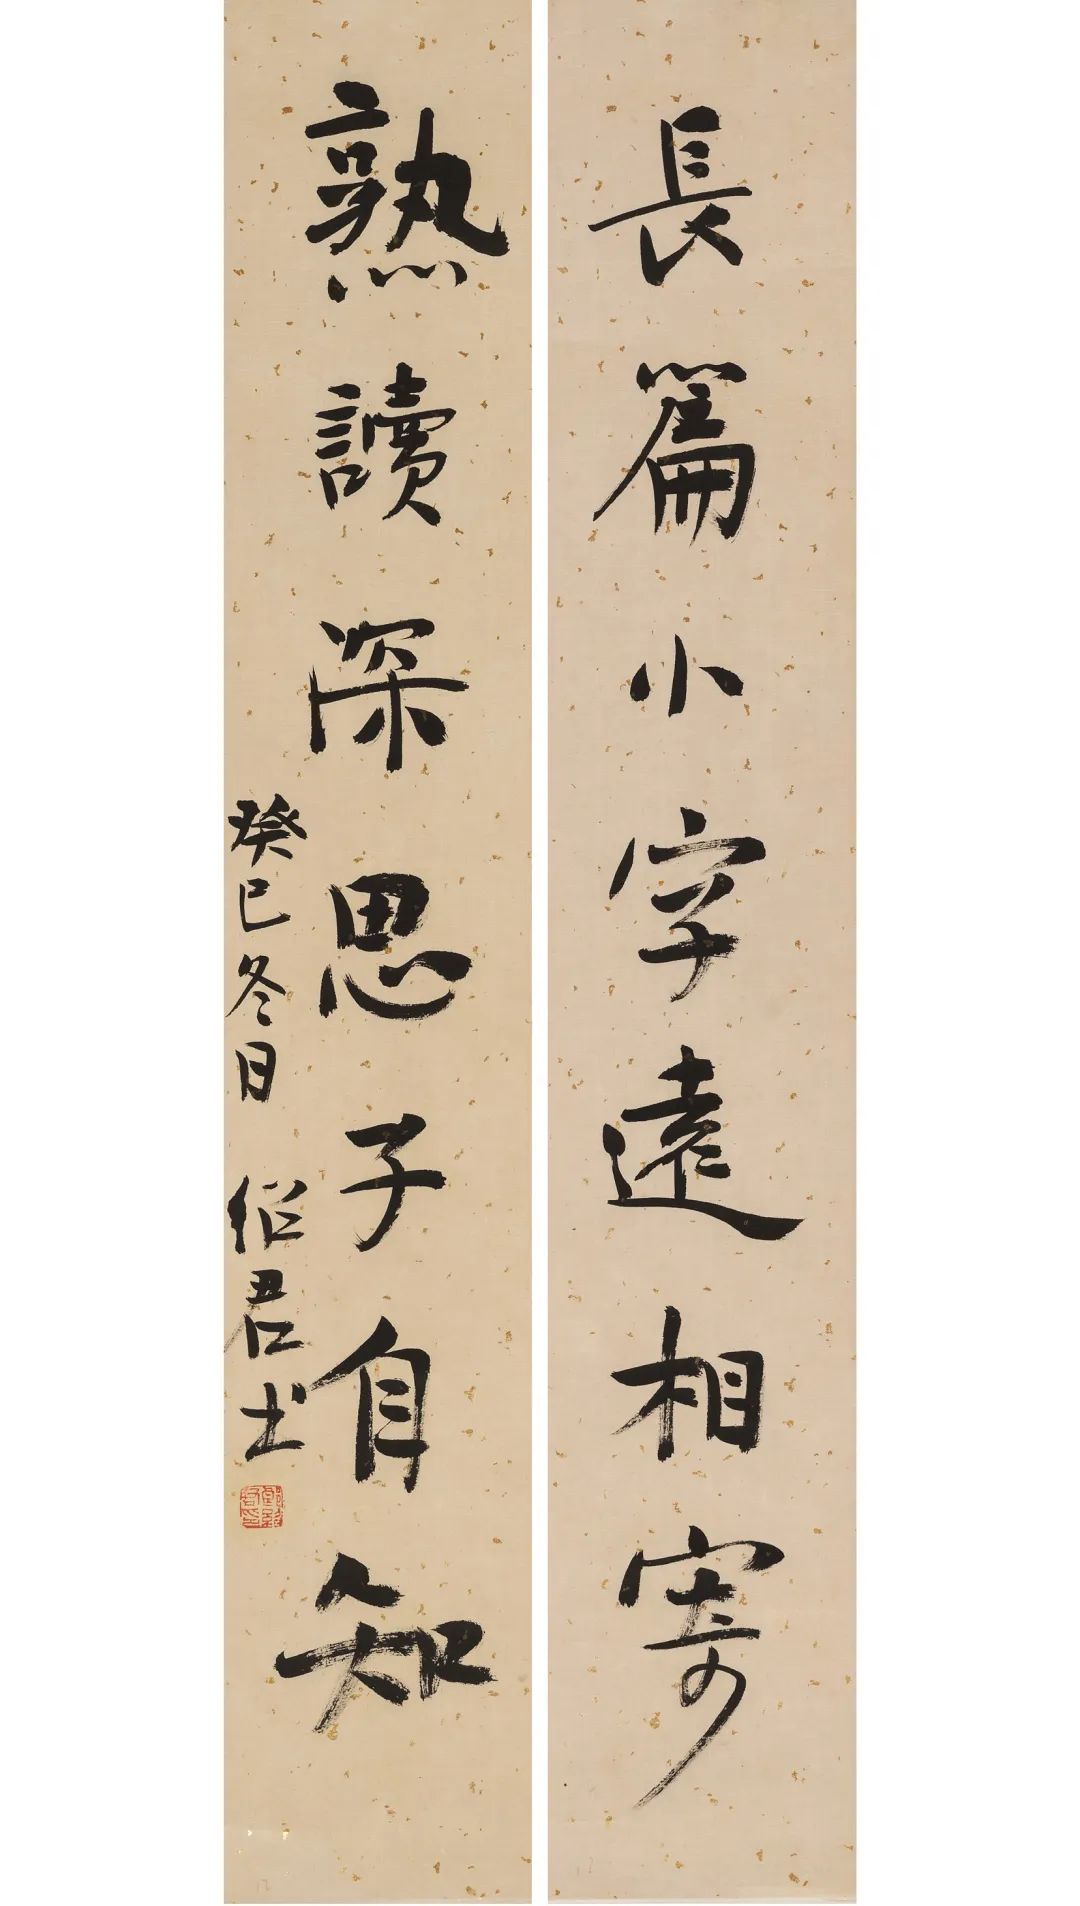 長篇小字遠相寄
熟讀深思子自知
癸巳冬日 紹君书